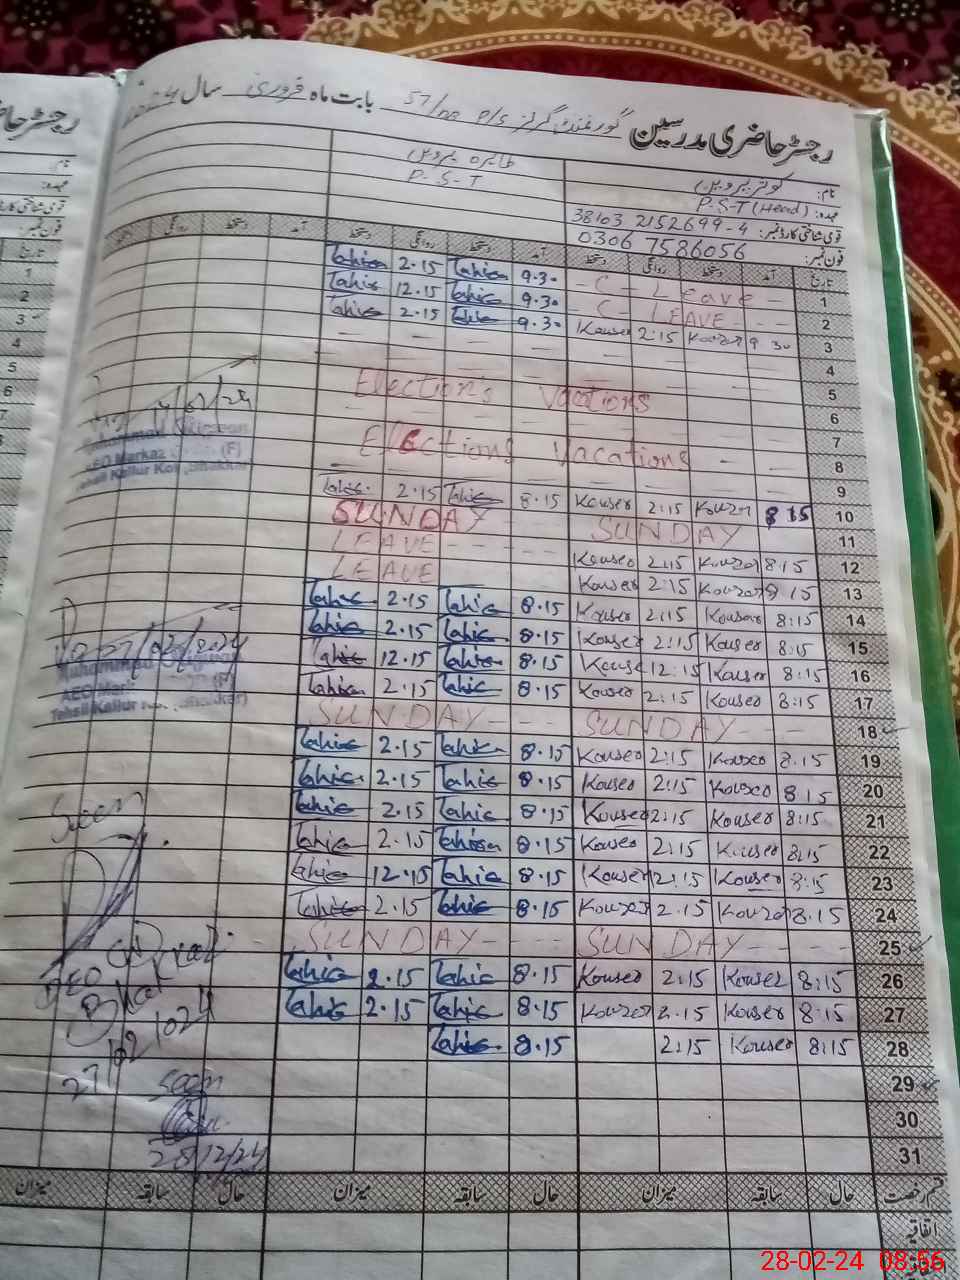 رجسٹر حاضری مدرسین گورنمنٹ گرلز P/S 57/DB بابت ماہ فروری سال
نام: کوثر پروین طاہرہ پروین
عہدہ: P.S.T (Head) P.S.T
قومی شناختی کارڈ نمبر: 38103 2152699-4
فون نمبر: 0306 7586056
تاریخ آمد دستخط روانگی دستخط آمد دستخط روانگی دستخط
1 - C - Leave 9.30 Tahira 2.15 Tahira
2 - C - LEAVE 9.30 Tahira 12.15 Tahira
3 9 30 Kouser 2:15 Kouser 9.30 Tahira 2.15 Tahira
4
5 Election's Vacations
6
7 Elections Vacations
8
9
10 8 15 Kouser 2:15 Kouser 8.15 Tahira 2.15 Tahira
11 SUNDAY SUNDAY
12 8:15 Kouser 2:15 Kouser LEAVE
13 8 15 Kouser 2:15 Kouser LEAVE
14 8:15 Kouser 2:15 Kouser 8.15 Tahira 2.15 Tahira
15 8:15 Kouser 2:15 Kouser 8.15 Tahira 2.15 Tahira
16 8:15 Kouser 12:15 Kouser 8.15 Tahira 12.15 Tahira
17 8:15 Kouser 2:15 Kouser 8.15 Tahira 2.15 Tahira
18 SUNDAY SUNDAY
19 8.15 Kouser 2:15 Kouser 8.15 Tahira 2.15 Tahira
20 8 15 Kouser 2:15 Kouser 8.15 Tahira 2.15 Tahira
21 8:15 Kouser 2:15 Kouser 8.15 Tahira 2.15 Tahira
22 8:15 Kouser 2:15 Kouser 8.15 Tahira 2.15 Tahira
23 8:15 Kouser 2:15 Kouser 8.15 Tahira 12.15 Tahira
24 8.15 Kouser 2.15 Kouser 8.15 Tahira 2.15 Tahira
25 SUNDAY SUNDAY
26 8:15 Kouser 2:15 Kouser 8.15 Tahira 2.15 Tahira
27 8:15 Kouser 2.15 Kouser 8.15 Tahira 2.15 Tahira
28 8:15 Kouser 2:15 8.15 Tahira
29
30
31
قسم رخصت حال سابقہ میزان حال سابقہ میزان حال سابقہ میزان
اتفاقیہ
AEO Markaz (F)
Tehsil Kallur Kot (Bhakkar)
(F)
Tehsil Kallur Kot (Bhakkar)
Seen
DEO
Bhakkar
27/02/024
Seen
28/2/24
رجسٹر حاضری
نام:
عہدہ:
قومی شناختی کارڈ نمبر:
فون نمبر:
تاریخ
1
2
3
4
5
6
7
8
28-02-24 08:56